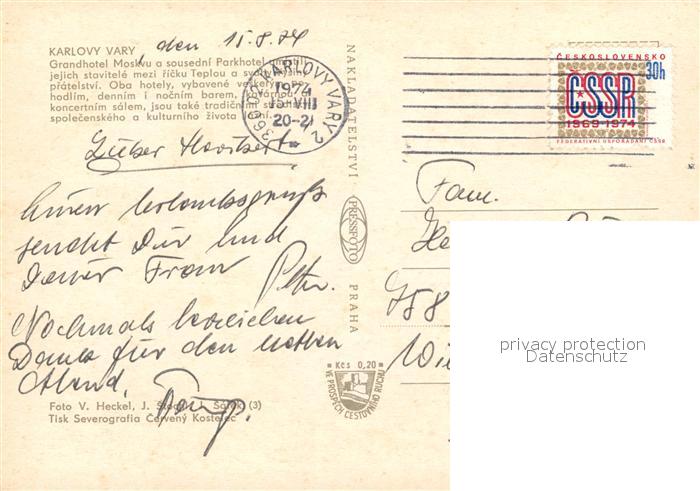 KARLOVY VARY, den 15.8.74
Grandhotel Moskva a sousední Parkhotel umístili
jejich stavitelé mezi říčku Teplou a svou
přátelství. Oba hotely, vybavené
hodlím, denním i nočním barem, kavárnou a
koncertním sálem, jsou také tradičním
společenského a kulturního života
360 01 KARLOVY VARY 2
1974
15.VIII
20-21
ČESKOSLOVENSKO
30h
ČSSR
1969-1974
FEDERATIVNÍ USPOŘÁDÁNÍ ČSSR
Lieber Heribert
Einen Urlaubsgruß
sendet Dir und
Deiner Frau Peter.
Nochmals herzlichen
Dank für den netten
Abend.
Fam.
758
Wie
NAKLADATELSTVÍ
PRESSFOTO
PRAHA
Kčs 0,20
VE PROSPĚCH CESTOVNÍHO RUCHU
Foto V. Heckel, J. (3)
Tisk Severografia Červený Kostelec
privacy protection
Datenschutz